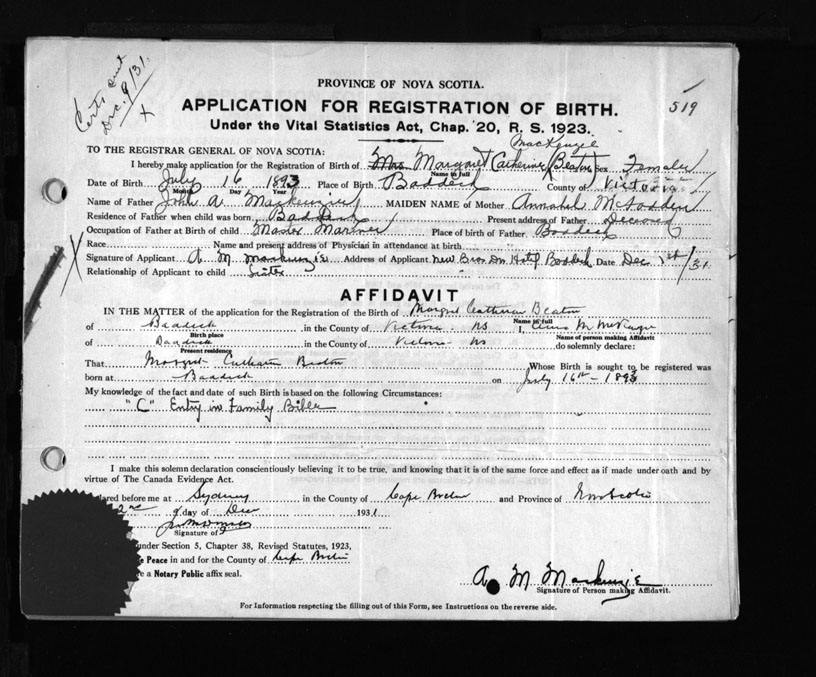 Certs sent
Dec. 9/31.
X
519
PROVINCE OF NOVA SCOTIA.
APPLICATION FOR REGISTRATION OF BIRTH.
Under the Vital Statistics Act, Chap. 20, R. S. 1923.
MacKenzie
TO THE REGISTRAR GENERAL OF NOVA SCOTIA:
I hereby make application for the Registration of Birth of Mrs Margaret Catherine (Beaton) Sex Female
Name in full
Date of Birth July 16 1893 Place of Birth Baddeck County of Victoria
Month Day Year
Name of Father John A. Mackenzie MAIDEN NAME of Mother Annabel
Residence of Father when child was born Baddeck Present address of Father Deceased
Occupation of Father at Birth of child Master Mariner Place of birth of Father Baddeck
Race Name and present address of Physician in attendance at birth
X Signature of Applicant A M Mackenzie Address of Applicant New Bras Dor Hotel Baddeck Date Dec 1st/31.
Relationship of Applicant to child Sister
AFFIDAVIT
IN THE MATTER of the application for the Registration of the Birth of Margret Catherine Beaton
Name in full
of Baddeck in the County of Victoria NS I, M
Birth place Name of person making Affidavit
of Baddeck in the County of Victoria NS do solemnly declare:
Present residence
That Margret Catherine Beaton Whose Birth is sought to be registered was
born at Baddeck on July 16th - 1893
My knowledge of the fact and date of such Birth is based on the following Circumstances:
"C" Entry in Family Bible
I make this solemn declaration conscientiously believing it to be true, and knowing that it is of the same force and effect as if made under oath and by
virtue of The Canada Evidence Act.
lared before me at Sydney in the County of Cape Breton and Province of Nova Scotia
2nd day of Dec 1931
Signature of
under Section 5, Chapter 38, Revised Statutes, 1923,
e Peace in and for the County of Cape Breton
e a Notary Public affix seal.
A M Mackenzie
Signature of Person making Affidavit.
For Information respecting the filling out of this Form, see Instructions on the reverse side.